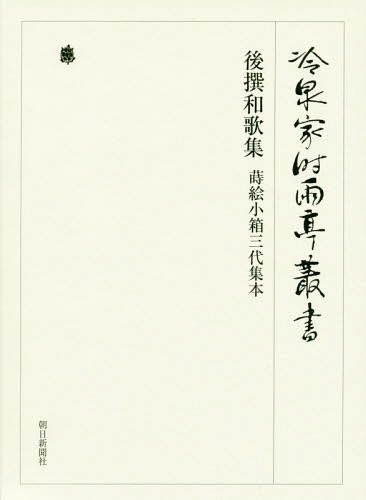 冷泉家時雨亭叢書
後撰和歌集 蒔絵小箱三代集本
朝日新聞社